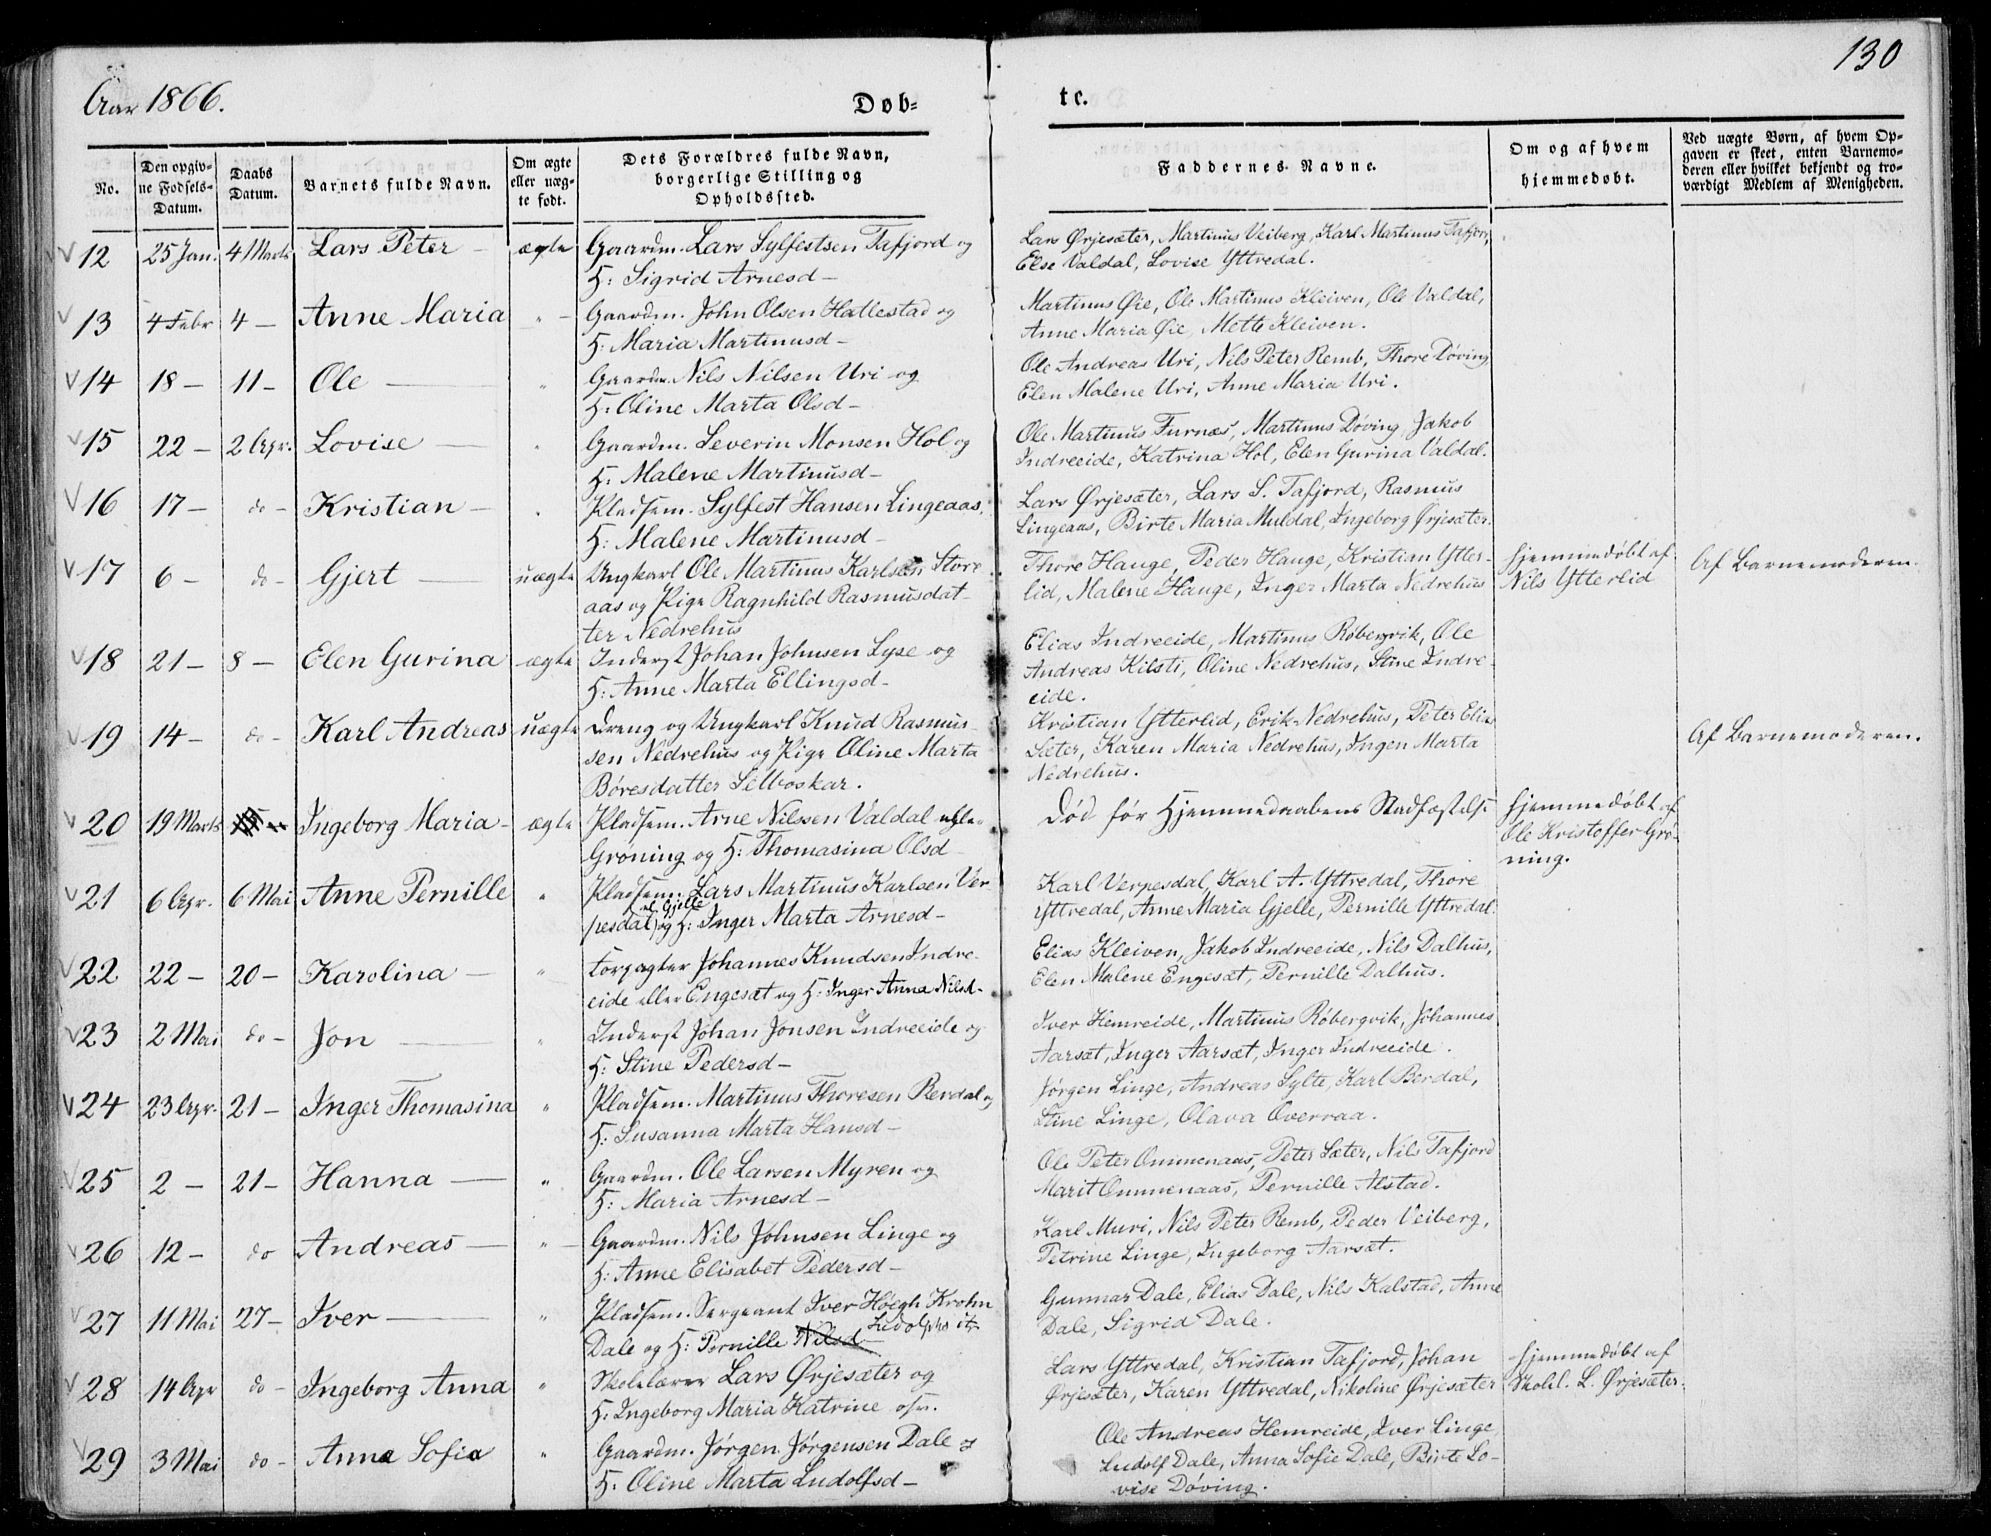 Aar 1866.
Døb-
te.
130
No.
Den opgiv-
ne Fødsels-
Datum.
Daabs
Datum.
Barnets fulde Navn.
Om ægte
eller uæg-
te født.
Dets Forældres fulde Navn,
borgerlige Stilling og
Opholdssted.
Faddernes Navne.
Om og af hvem
hjemmedøbt.
Ved uægte Børn, af hvem Op-
gaven er skeet, enten Barnemo-
deren eller hvilket bekjendt og tro-
værdigt Medlem af Menigheden.
12 25 Jan. 4 Marts Lars Peter – ægte Gaardm. Lars Sylfestsen Tafjord og
H: Sigrid Arnesd –
Lars Ørjesæter, Martinus Veiberg, Karl Martinus Tafjord,
Else Valdal, Lovise Yttredal.
13 4 Febr 4 – Anne Maria " – Gaardm. John Olsen Hallestad og
H: Maria Martinusd –
Martinus Øie, Ole Martinus Kleiven, Ole Valdal,
Anne Maria Øie, Mette Kleiven.
14 18 – 11 – Ole – " Gaardm. Nils Nilsen Uri og
H: Oline Marta Olsd –
Ole Andreas Uri, Nils Peter Remb, Thore Døving,
Elen Malene Uri, Anne Maria Uri.
15 22 – 2 Apr. Lovise – " Gaardm. Severin Monsen Hol og
H: Malene Martinusd –
Ole Martinus Furnæs, Martinus Døving, Jakob
Indreeide, Katrina Hol, Elen Gurina Valdal.
16 17 – do – Kristian – " Pladsem. Sylfest Hansen Lingeaas,
H: Malene Martinusd –
Lars Ørjesæter, Lars S. Tafjord, Rasmus
Lingeaas, Birte Maria Muldal, Ingeborg Ørjesæter.
17 6 – do – Gjert – uægte Ungkarl Ole Martinus Karlsen Store
aas og Pige Ragnhild Rasmusdat-
ter Nedrehus
Thore Hauge, Peder Hauge, Kristian Ytter-
lid, Malene Hauge, Inger Marta Nedrehus
hjemmedøbt af
Nils Ytterlid
Af Barnemoderen.
18 21 – 8 – Elen Gurina ægte Inderst Johan Johnsen Lyse og
H: Anne Marta Ellingsd –
Elias Indreeide, Martinus Røbergvik, Ole
Andreas Kilsti, Oline Nedrehus, Stine Indre-
eide.
19 14 – do – Karl Andreas uægte Dreng og Ungkarl Knud Rasmus-
sen Nedrehus og Pige Oline Marta
Børesdatter Selboskar.
Kristian Ytterlid, Erik Nedrehus, Peter Elias
Sæter, Karen Maria Nedrehus, Ingen Marta
Nedrehus.
Af Barnemoderen.
20 19 Marts Ingeborg Maria – ægte Pladsem. Arne Nilssen Valdal
Grøning og H: Thomasina Olsd –
Død før Hjemmedaabens Stadfæstelse
hjemmedøbt af
Ole Kristoffer Grø-
ning.
21 6 Apr. 6 Mai Anne Pernille " Pladsem. Lars Martinus Karlsen Ver
pesdal el. Gjelle og H: Inger Marta Arnesd –
Karl Verpesdal, Karl A. Yttredal, Thore
Yttredal, Anne Maria Gjelle, Pernille Yttredal.
22 22 – 20 – Karolina – " Forpagter Johannes Knudsen Indre-
eide eller Engesæt og H: Inger Anna Nilsd –
Elias Kleiven, Jakob Indreeide, Nils Dalhus,
Elen Malene Engesæt, Pernille Dalhus.
23 2 Mai do – Jon – " Inderst Johan Jonsen Indreeide og
H: Stine Pedersd –
Iver Hemreide, Martinus Røbergvik, Johannes
Aarsæt, Inger Aarsæt, Inger Indreeide.
24 23 Apr. 21 – Inger Thomasina " Pladsem. Martinus Thoresen Berdal og
H: Susanna Marta Hansd –
Jørgen Linge, Andreas Sylte, Karl Berdal,
Stine Linge, Olava Overraa.
25 2 – 21 – Hanna – " Gaardm. Ole Larsen Myren og
H: Maria Arnesd –
Ole Peter Ommenaas, Peter Sæter, Nils Tafjord
Marit Ommenaas, Pernille Alstad.
26 12 – do Andreas – " – Gaardm. Nils Johnsen Linge og
H: Anne Elisabet Pedersd –
Karl Muri, Nils Peter Remb, Peder Veiberg,
Petrine Linge, Ingeborg Aarsæt.
27 11 Mai 27 – Iver – " Pladsem. Sergeant Iver Høegh Krohn
Dale og H: Pernille Nilsd –
Gunnar Dale, Elias Dale, Nils Kalstad, Anne
Dale, Sigrid Dale.
28 14 Apr do – Ingeborg Anna " Skolelærer Lars Ørjesæter og
H: Ingeborg Maria Katrine
Lars Yttredal, Kristian Tafjord, Johan
Ørjesæter, Karen Yttredal, Nikoline Ørjesæter
hjemmedøbt af
Skolel. L. Ørjesæter.
29 3 Mai do – Anna Sofia " Gaardm. Jørgen Jørgensen Dale og
H: Oline Marta Ludolfsd –
Ole Andreas Hemreide, Iver Linge,
Ludolf Dale, Anna Sofie Dale, Birte Lo-
vise Døving.